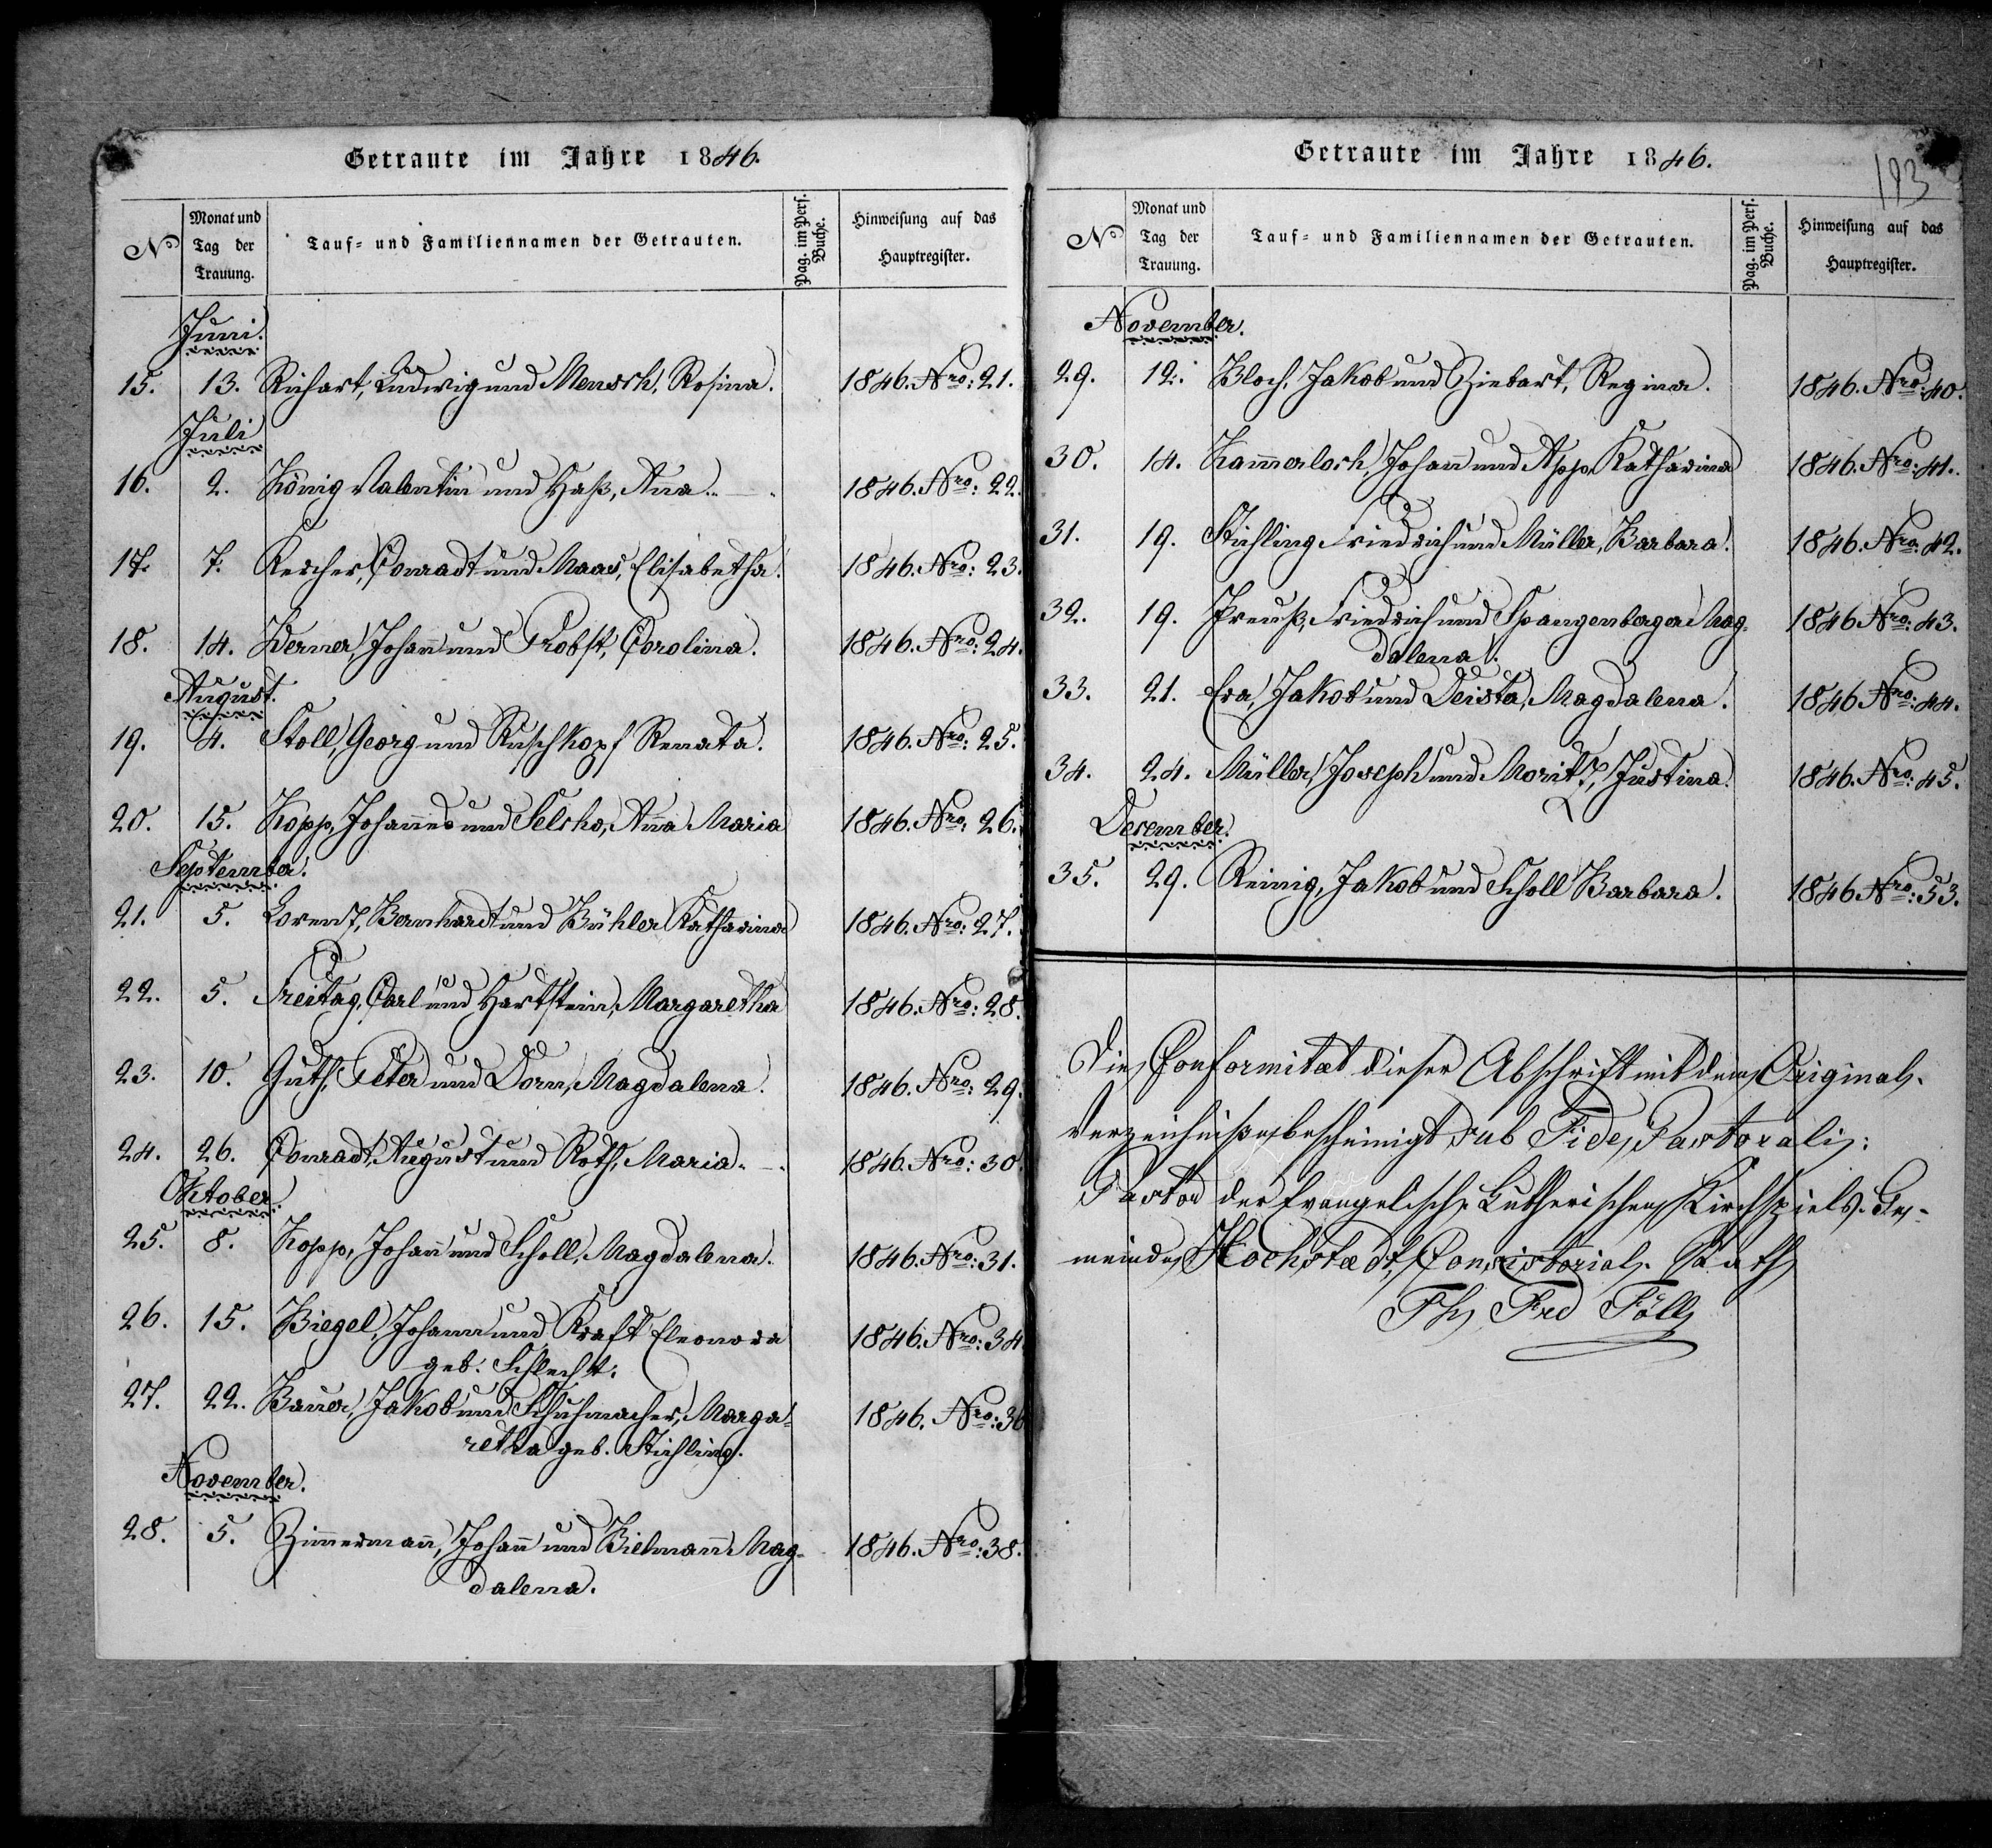 Getraute im Jahre 1846.
No
Monat und
Tag der
Trauung.
Tauf= und Familiennamen der Getrauten.
Pag. im Pers.
Buche.
Hinweisung auf das
Hauptregister.
Juni.
15. 13. Richart, Ludwig und Mensch, Rosina. 1846. Nro: 21.
Juli
16. 2. König Valentin und Haß, Ana. 1846. Nro: 22.
17. 7. Kercher, Conradt und Maas, Elisabetha. 1846. Nro: 23.
18. 14. Werner, Johan und Probst, Carolina. 1846. Nro: 24.
August.
19. 4. Stoll, Georg und Ruschkopf Renata. 1846. Nro: 25.
20. 15. Kopp, Johannes und Selcho, Ana Maria 1846. Nro: 26.
September.
21. 5. Lorentz, Bernhardt und Bühler Katharina 1846. Nro: 27.
22. 5. Freitag, Carl und Hartstein, Margaretha 1846. Nro: 28.
23. 10. Guth, Peter und Dorn, Magdalena. 1846. Nro: 29.
24. 26. Conradt, August und Roth, Maria. 1846. Nro: 30.
Oktober.
25. 8. Kopp, Johan und Scholl, Magdalena. 1846. Nro: 31.
26. 15. Biegel, Johann und Kraft Eleonora 1846. Nro: 34.
geb. Schlecht.
27. 22. Bauer, Jakob und Schuhmacher, Marga= 1846. Nro: 36
retha geb. Stichling.
November.
28. 5. Zimmerman, Johan und Bielman Mag- 1846. Nro: 38.
dalena.
Getraute im Jahre 1846.
193
No
Monat und
Tag der
Trauung.
Tauf= und Familiennamen der Getrauten.
Pag. im Pers.
Buche.
Hinweisung auf das
Hauptregister.
November.
29. 12. Bloch, Jakob und Ziebart, Regina. 1846. Nro: 40.
30. 14. Kammerloch, Johan und App, Katharina 1846. Nro: 41.
31. 19. Stichling Friedrich und Müller, Barbara. 1846. Nro: 42.
32. 19. Preuß, Friedrich und Spangenberger Mag- 1846 Nro: 43.
dalena.
33. 21. Era, Jakob und Deista, Magdalena. 1846 Nro: 44.
34. 24. Müller, Joseph und Moritz, Justina. 1846. Nro: 45.
December.
35. 29. Reinig, Jakob und Scholl Barbara. 1846 Nro: 53.
Die Conformitæt dieser Abschrift mit dem Original-
Verzeichniße bescheinigt sub Fide Pastorali:
Pastor der Evangelisch-Lutherischen Kirchspiels-Ge-
meinde Hochstædt, Consistorial-Rath
Fh Frd Föll